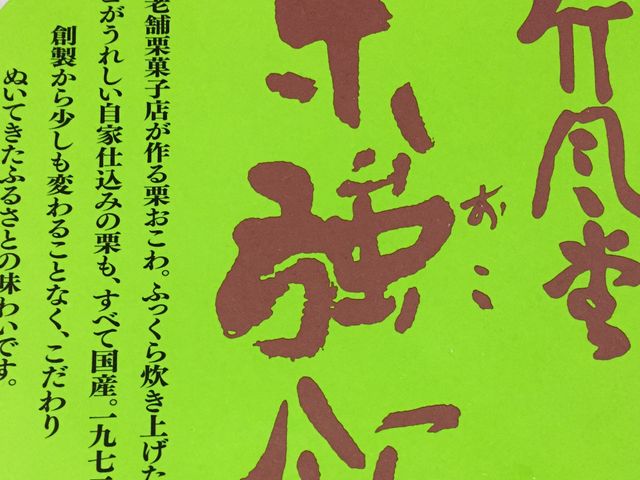 竹風堂
栗強飯
おこ
老舗栗菓子店が作る栗おこわ。ふっくら炊き上げた
がうれしい自家仕込みの栗も、すべて国産。一九七
創製から少しも変わることなく、こだわり
ぬいてきたふるさとの味わいです。